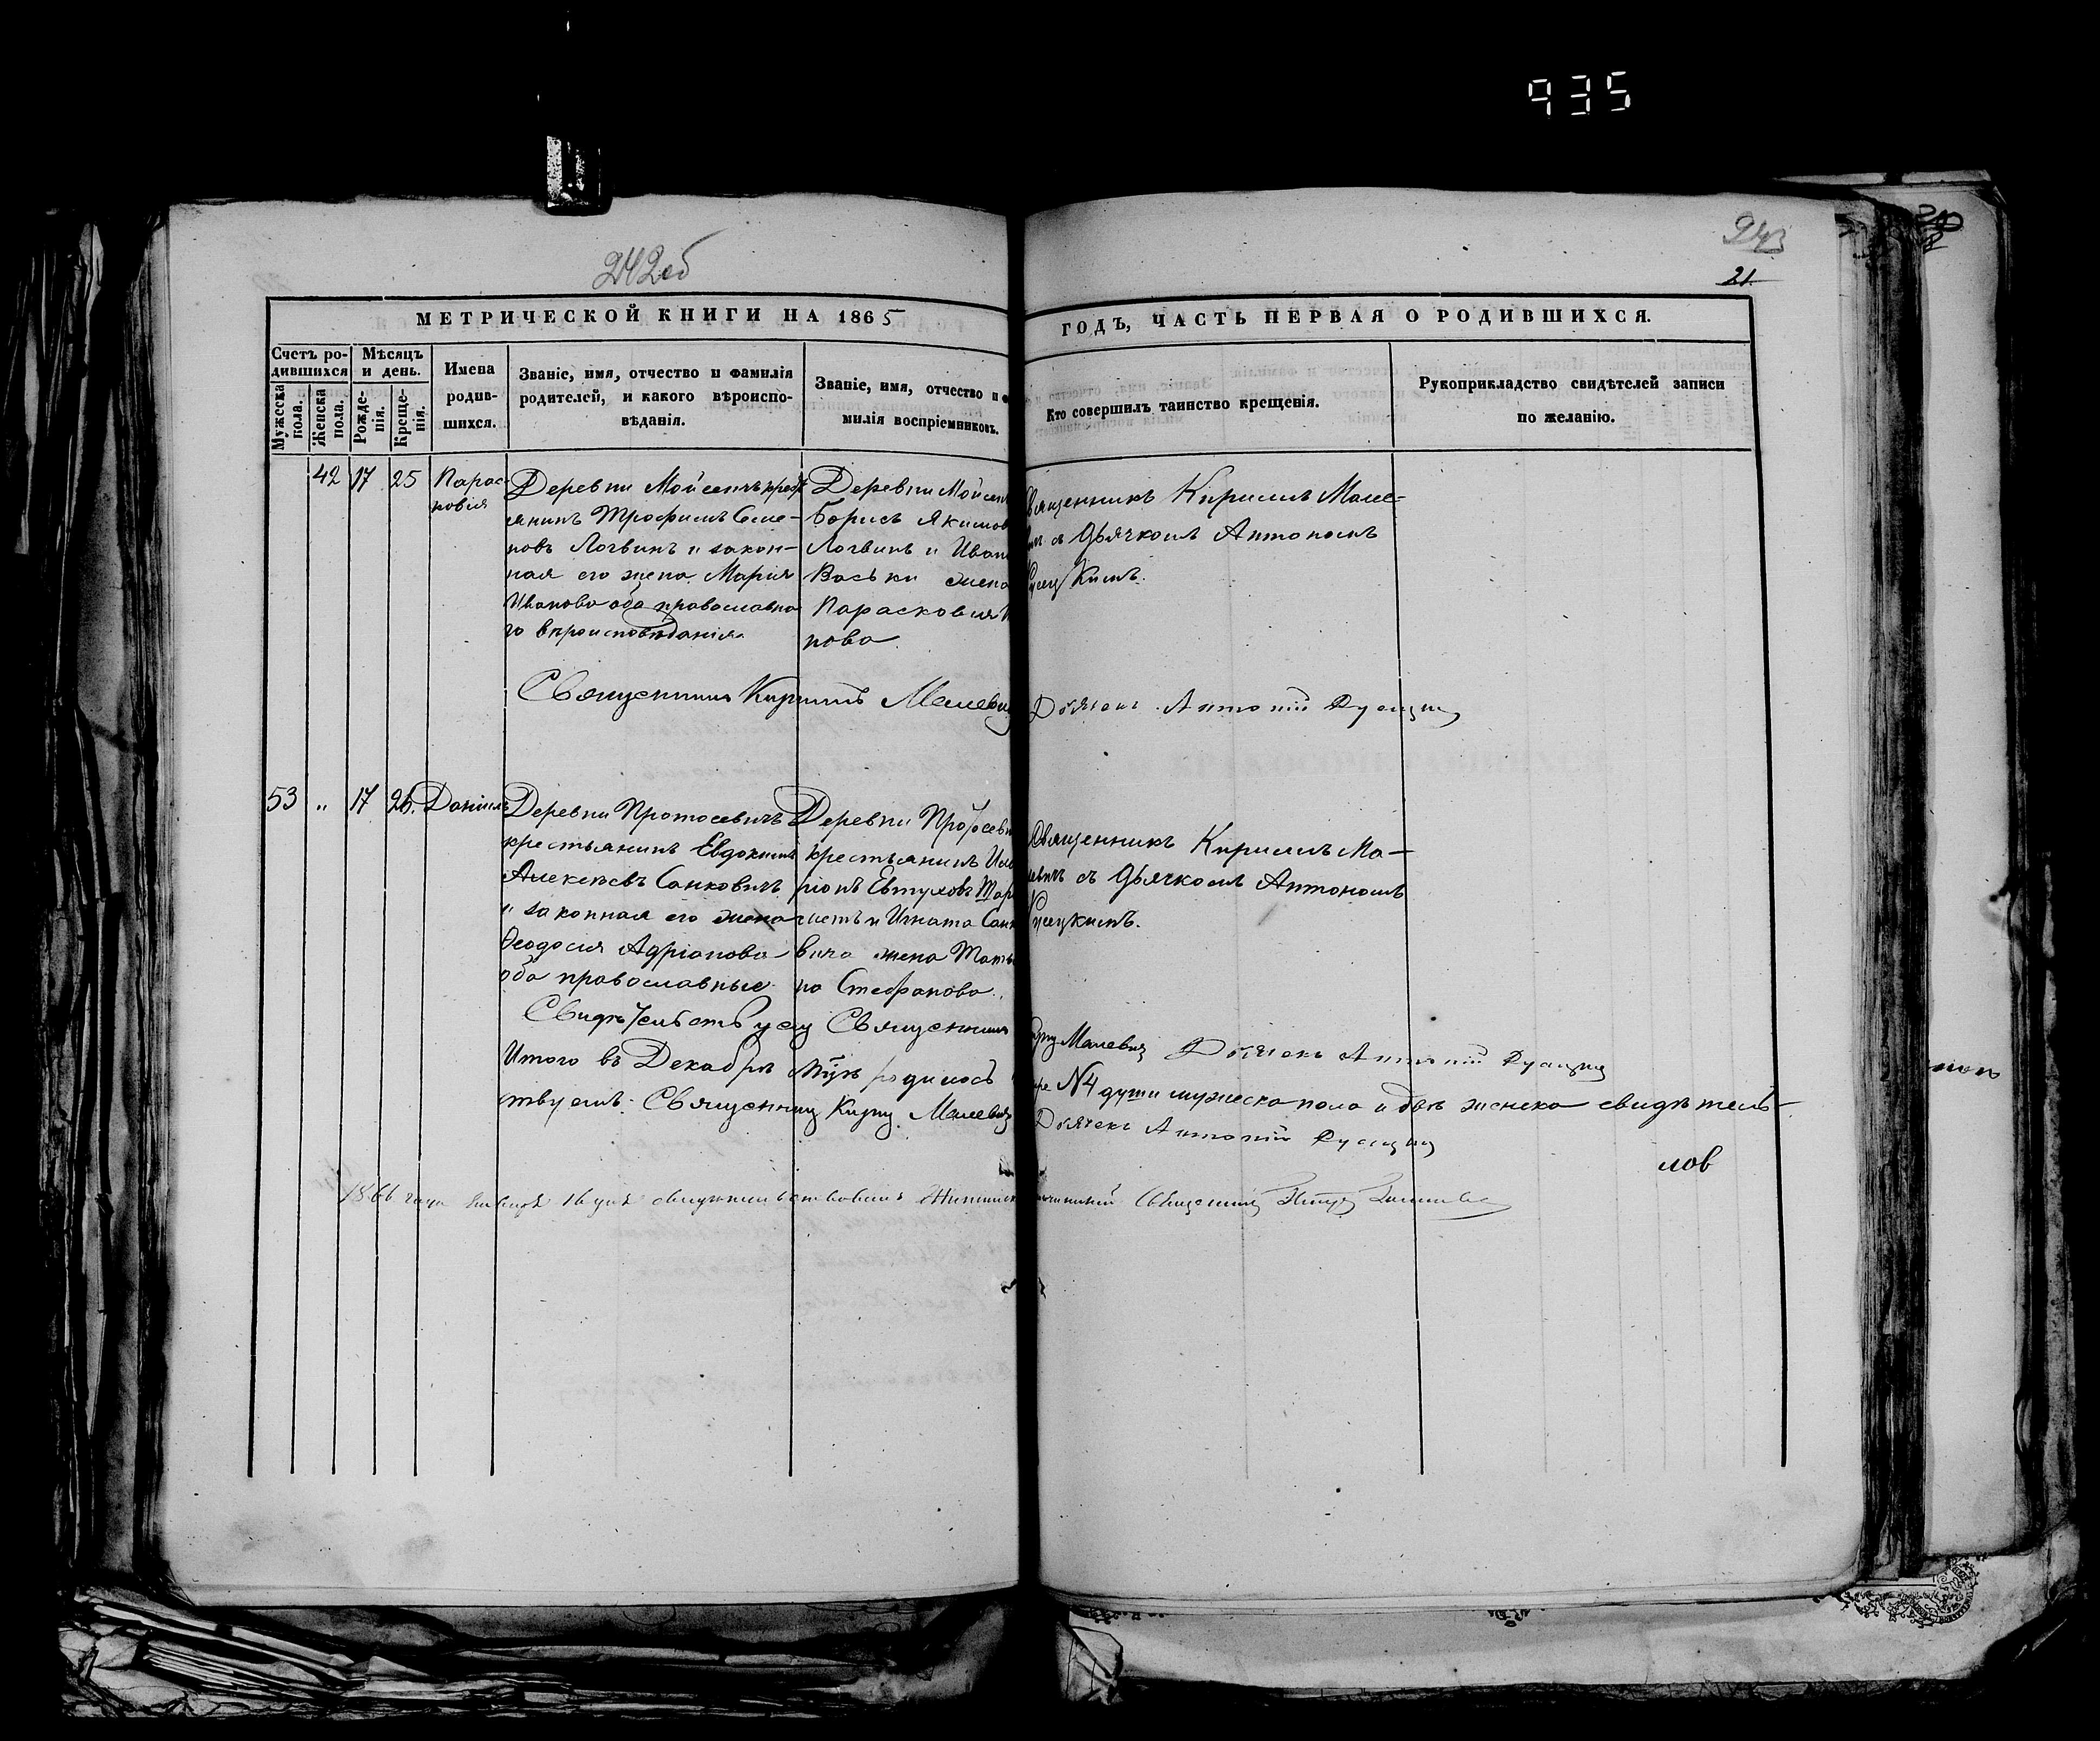 935
242об
243
21
МЕТРИЧЕСКОЙ КНИГИ НА 1865
ГОДЪ, ЧАСТЬ ПЕРВАЯ О РОДИВШИХСЯ.
Счетъ ро-
дившихся
Мужеска
пола.
Женска
пола.
Мѣсяцъ
и день.
Рожде-
нія.
Креще-
нія.
Имена
родив-
шихся.
Званіе, имя, отчество и фамилія
родителей, и какого вѣроиспо-
вѣданія.
Званіе, имя, отчество и ф
милія воспріемниковъ.
Кто совершилъ таинство крещенія.
Рукоприкладство свидѣтелей записи
по желанію.
42 17 25
Парас-
ковія
Деревни Мойсеичъ крест
янинъ Трофимъ Семе-
новъ Логвинъ и закон-
ная его жена Марія
Иванова оба православна
го вѣроисповѣданія.
Деревни Мойсеи
Борисъ Якимов
Логвинъ и Иван
Васьки жена
Парасковія И
нова
Священникъ Кириллъ Мале-
вичъ съ Дьячкомъ Антономъ
Русецкимъ.
Священникъ Кириллъ Малевич
Дьячекъ Антоній Русецкій
53 " 17 26. Даніилъ
Деревни Протосевичъ
крестьянинъ Евдокимъ
Алексѣевъ Санковичъ
и законная его жена
Ѳеодосія Адріанова
оба православные
Деревни Протосеви
крестьянинъ Ила
ріонъ Евтуховъ Шар
и Игната Санк
вича жена Татья
на Стефанова.
Священникъ Кириллъ Ма-
левичъ съ Дьячкомъ Антономъ
Русецкимъ.
Свидѣтельствуему Священникъ
Малевич Дьячекъ Антоній Русецкій
Итого въ Декабрѣ мцѣ родилось
№4 души мужеска пола и двѣ женска свидѣтель-
ствуемъ: Священник Малевич
Дьячекъ Антоній Русецкій
лов
1866 года Января 16 дня свидѣтельствовалъ
Священник